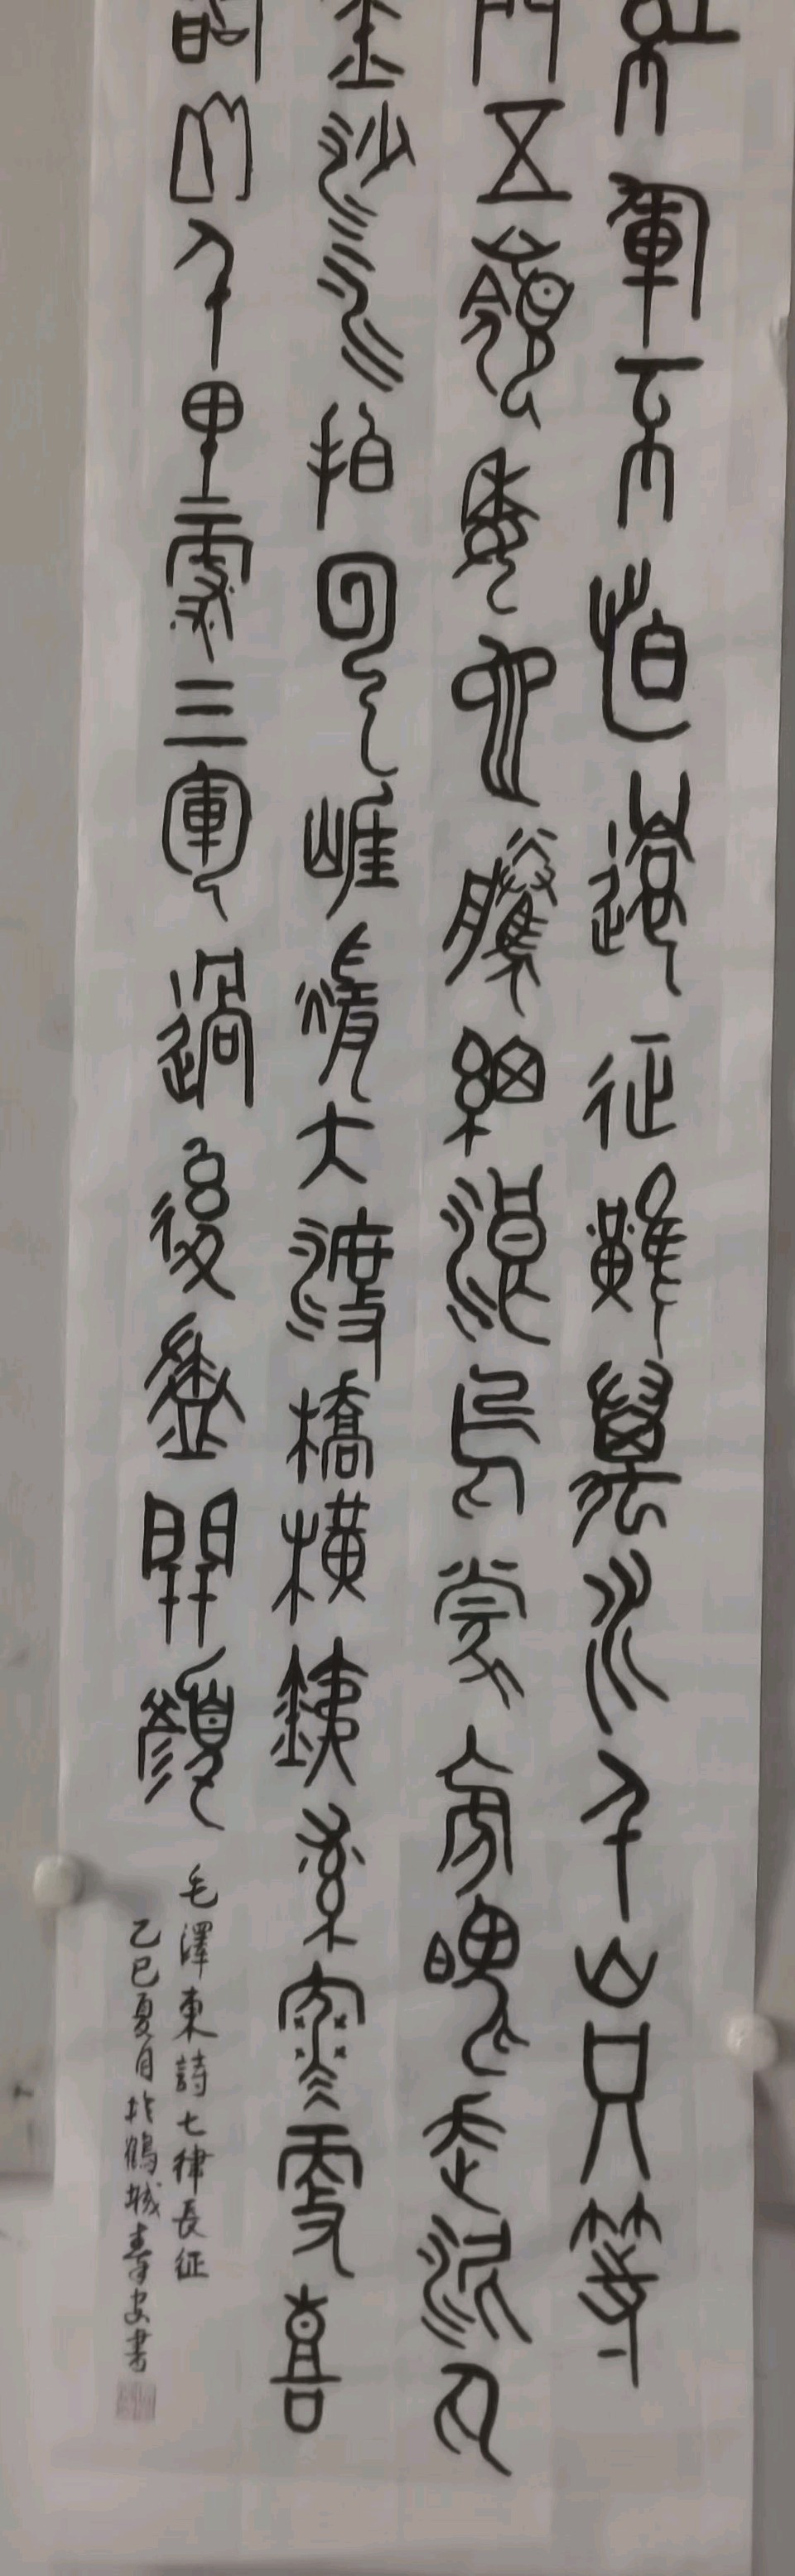 紅軍不怕遠征難萬水千山只等
閒五嶺逶迤騰細浪烏蒙磅礴走泥丸
金沙水拍雲崖暖大渡橋橫鐵索寒更喜
岷山千里雪三軍過後盡開顏
毛澤東詩七律長征
乙巳夏月於鶴城壽安書